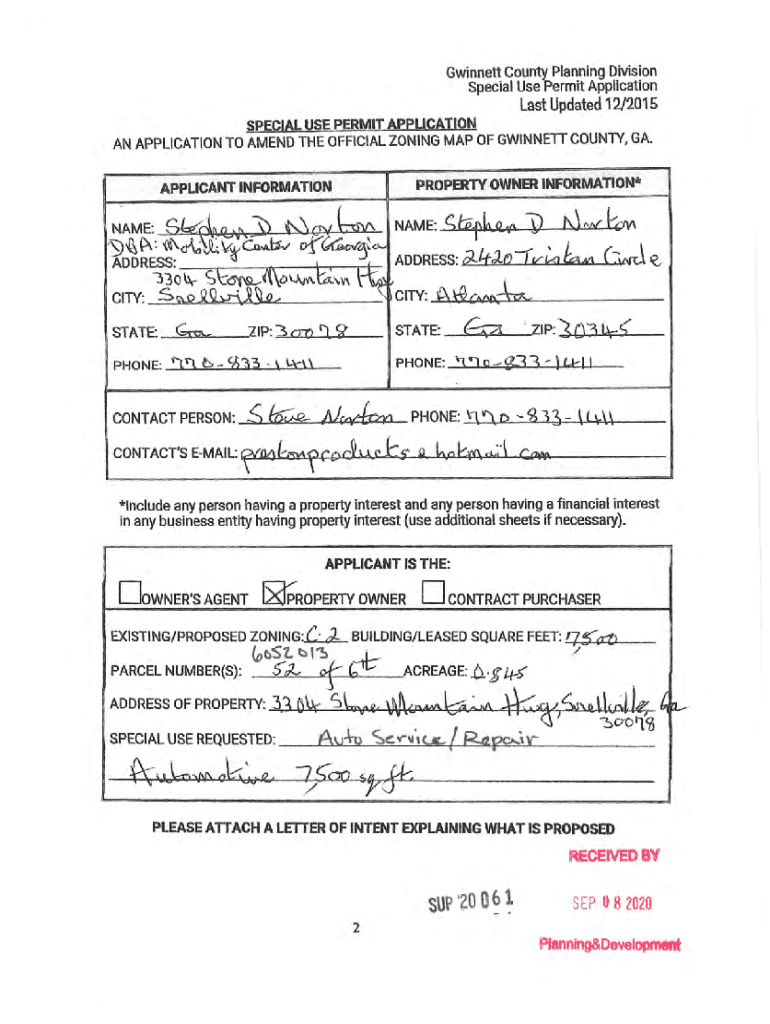 Gwinnett County Planning Division
Special Use Permit Application
Last Updated 12/2015
SPECIAL USE PERMIT APPLICATION
AN APPLICATION TO AMEND THE OFFICIAL ZONING MAP OF GWINNETT COUNTY, GA.
APPLICANT INFORMATION
NAME: Stephen D Norton
DBA: Mobility Center of Georgia
ADDRESS:
3304 Stone Mountain Hwy
CITY: Snellville
STATE: Ga ZIP: 30078
PHONE: 770-833-1411
PROPERTY OWNER INFORMATION*
NAME: Stephen D Norton
ADDRESS: 2420 Tristan Circle
CITY: Atlanta
STATE: Ga ZIP: 30345
PHONE: 770-833-1411
CONTACT PERSON: Steve Norton PHONE: 770-833-1411
CONTACT'S E-MAIL: prestonproducts@hotmail.com
*Include any person having a property interest and any person having a financial interest
in any business entity having property interest (use additional sheets if necessary).
APPLICANT IS THE:
OWNER'S AGENT PROPERTY OWNER CONTRACT PURCHASER
EXISTING/PROPOSED ZONING: C-2 BUILDING/LEASED SQUARE FEET: 7,500
6052 013
PARCEL NUMBER(S): 52 of 6th ACREAGE: 0.845
ADDRESS OF PROPERTY: 3304 Stone Mountain Hwy, Snellville, Ga
30078
SPECIAL USE REQUESTED: Auto Service / Repair
Automotive 7,500 sq. ft.
PLEASE ATTACH A LETTER OF INTENT EXPLAINING WHAT IS PROPOSED
RECEIVED BY
SUP '20 061
SEP 08 2020
2
Planning&Development